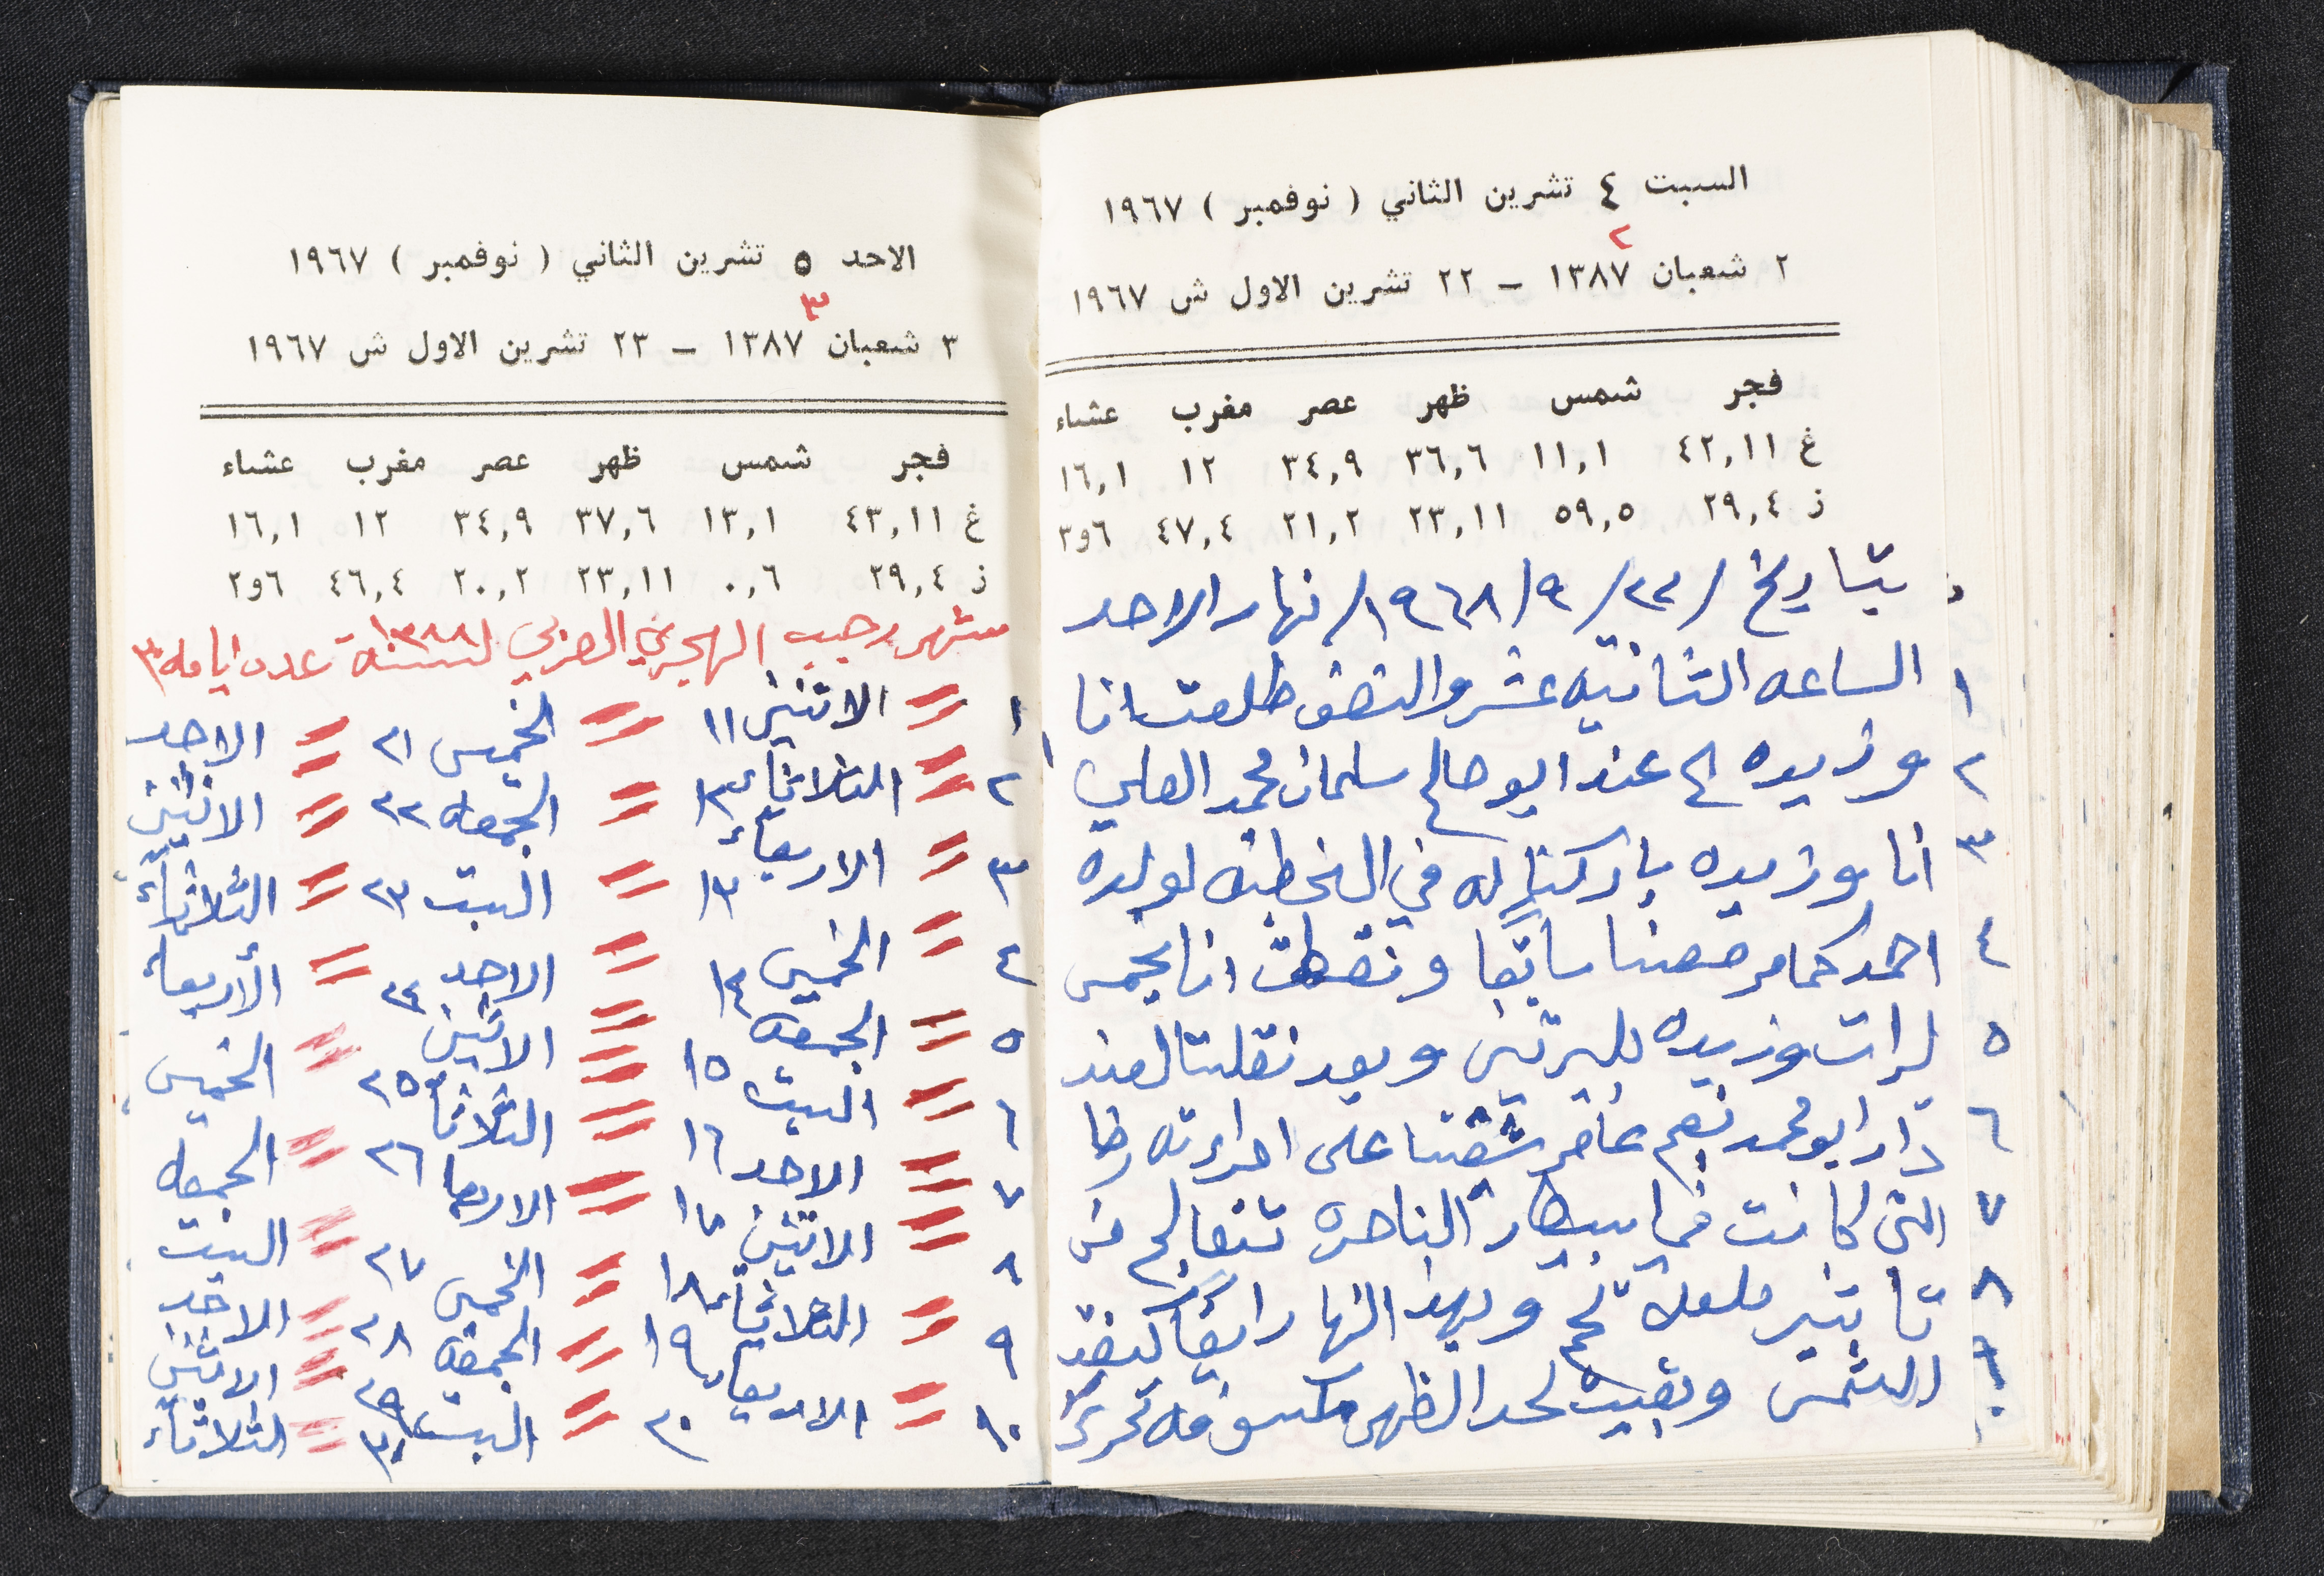 السبت ٤ تشرين الثاني ( نوفمبر ) ١٩٦٧
٢
٢ شعبان ١٣٨٧ – ٢٢ تشرين الاول ش ١٩٦٧
فجر شمس ظهر عصر مغرب عشاء
غ ٤٢,١١ ١١,١ ٣٦,٦ ٣٤,٩ ١٢ ١٦,١
ز ٢٩,٤ ٥٩,٥ ٢٣,١١ ٢١,٢ ٤٧,٤ ٦و٣
بتاريخ /٢٢/ ٩/ ١٩٦٨/ نهار الاحد
١ الساعه الثانيه عشر والنصف طلعت انا
٢ وزيده الى عند ابو صالح سلمان محمد العلي
٣ انا وزيده باركنا له في الخطبه لولده
٤ احمد كما مر معنا سابقا ونقطت انا بخمس
٥ لرات وزيده بليرتين وبعد نقلتا لعند
٦ دار ابو محمد نعيم شقنا على امراءته رضا
٧ التي كانت في الناصره تتعالج من
٨ تأثير لحم وبهذا النهار ايضا
٩ الشمس وبقيت لحد الظهر مكسوفه
الاحد ٥ تشرين الثاني ( نوفمبر ) ١٩٦٧
٣
٣ شعبان ١٣٨٧ – ٢٣ تشرين الاول ش ١٩٦٧
فجر شمس ظهر عصر مغرب عشاء
غ ٤٣,١١ ١٣,١ ٣٧,٦ ٣٤,٩ ١٢ ١٦,١
ز ٢٩,٤ ٠,٦ ٢٣,١١ ٢٠,٢ ٤٦,٤ ٦و٢
شهر رجب الهجري العربي لسنة ١٣٨٨ عدد ايامه ٣٠
١ = الاثنين ١١ = الخميس ٢١ = الاحد
٢ = الثلاثاء ١٢ = الجمعه ٢٢ = الاثنين
٣ = الاربعاء ١٣ = السبت ٢٣ = الثلاثاء
٤ = الخميس ١٤ = الاحد ٢٤ = الأربعاء
٥ = الجمعه ١٥ = الاثنين ٢٥ = الخميس
٦ = السبت ١٦ = الثلاثاء ٢٦ = الجمعه
٧ = الاحد ١٧ = الاربعا ٢٧ = السبت
٨ = الاثنين ١٨ = الخميس ٢٨ = الاحد
٩ = الثلاثاء ١٩ = الجمعه ٢٩ = الاثنين
١٠ = الاربعاء ٢٠ = السبت ٣٠ = الثلاثاء